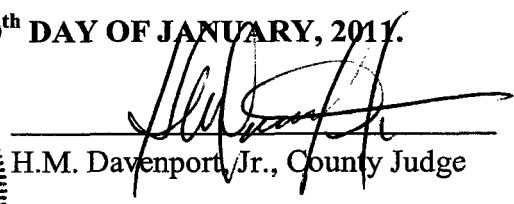 th DAY OF JANUARY, 2011.
H.M. Davenport, Jr., County Judge